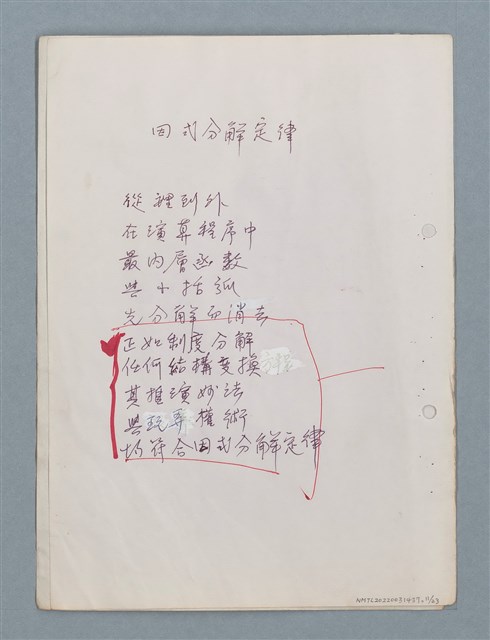 因式分解定律
從裡到外
在演算程序中
最內層函數
與小括弧
先分解而消去
正如制度分解
任何結構變換
其推演妙法
與玩弄權術
均符合因式分解定律